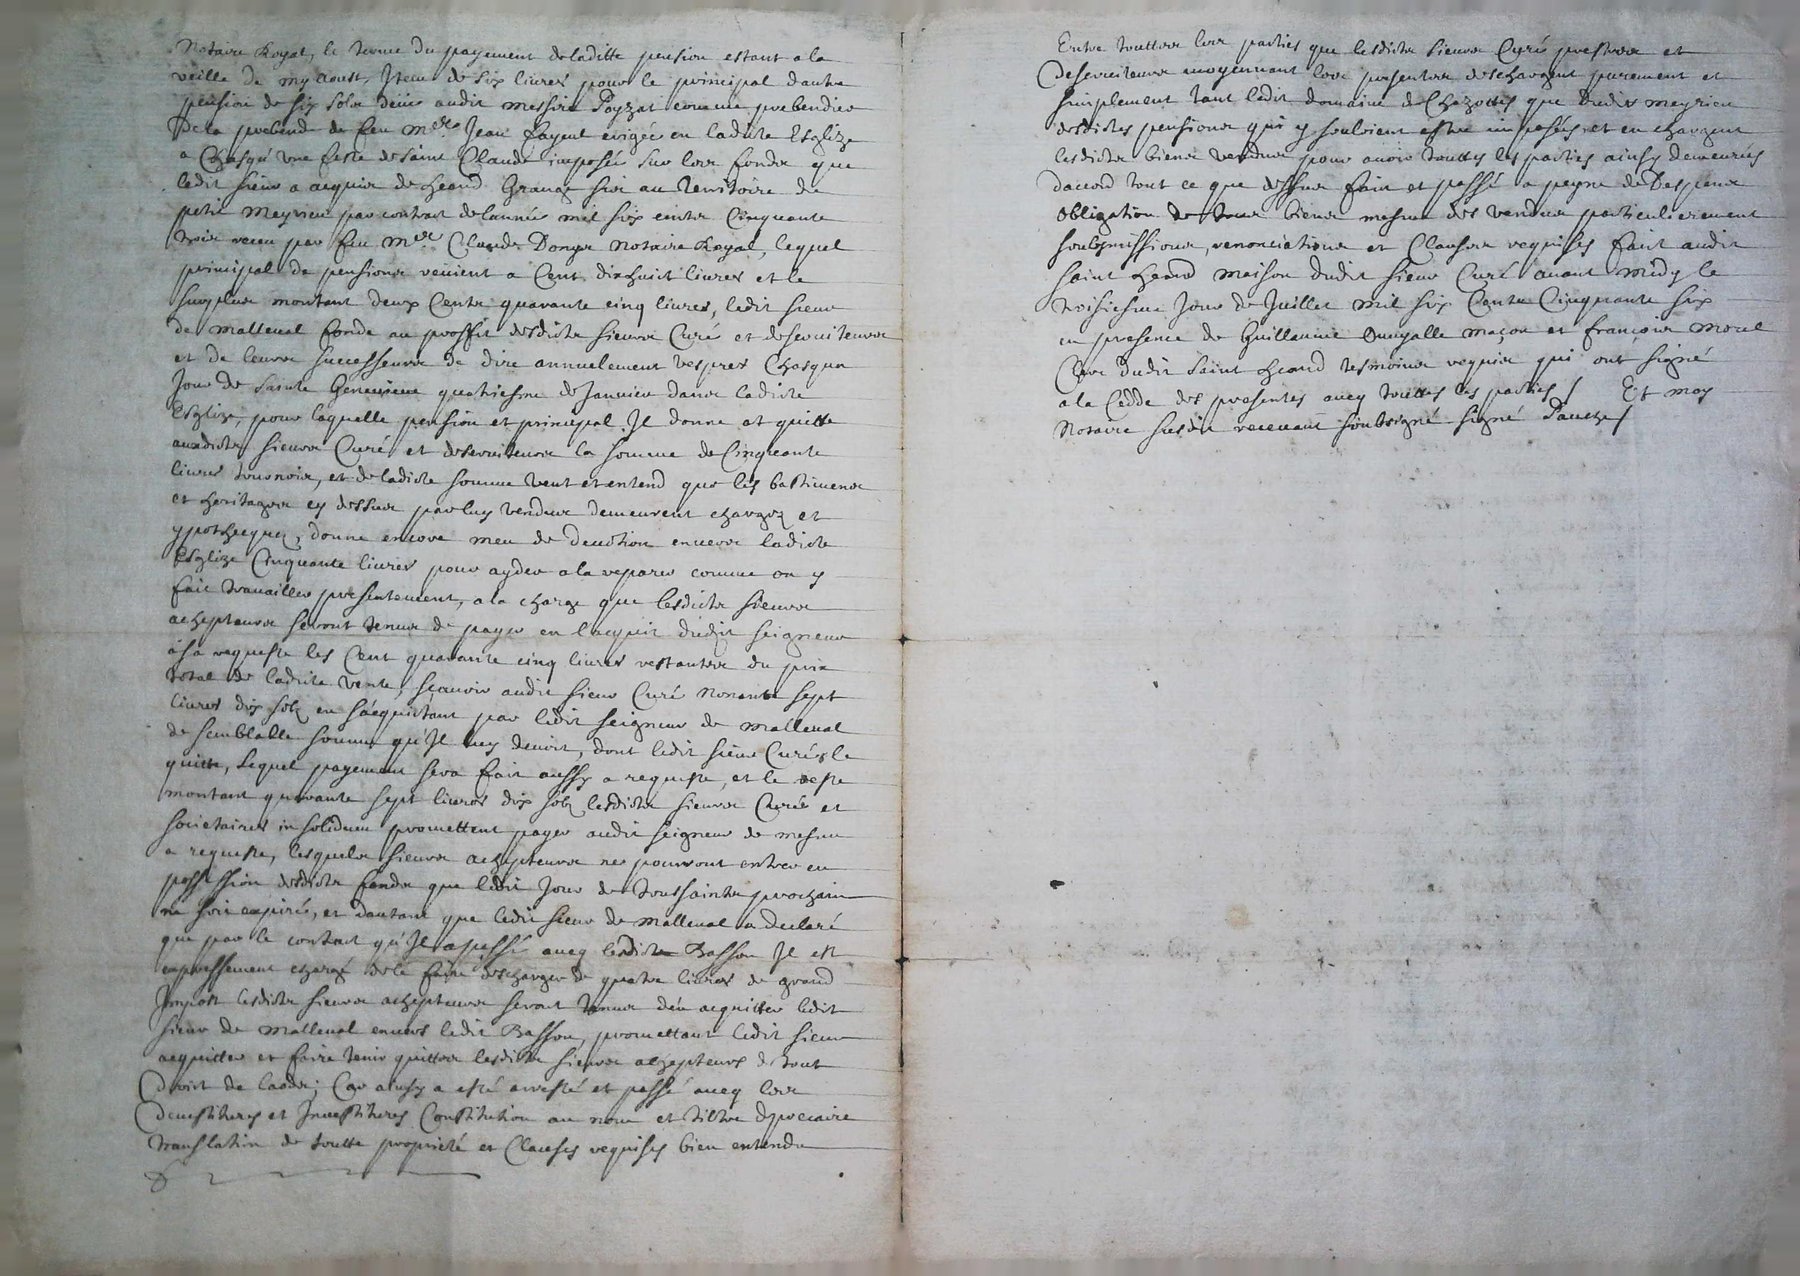 Notaire Royal, le terme du payement de laditte pension estant a la
veille de my Aoust, Item de six livres pour le principal dautre
pension de six solz deüe audit messire Payzat comme prebendier
de la prebende de feu Mre Jean fayeul erigée en ladite Esglize
a Chasqu'une feste de Saint Claude imposée sur lees fondz que
ledit sieur a acquis de heand Grange size au Territoire de
petit Meyrieu par contract de lannée mil six centz Cinquante
trois receu par feu Mre Claude Donyer Notaire Royal, lequel
principal de pensions revient a Cent dixhuict livres et le
surplus montant deux Centz quarante cinq livres, ledit sieur
de malleual fonde au proffit desdictz sieurs Curé et deservitteurs
et de leurs successeurs de dire annuelement vespres Chasque
Jour de Sainte Genevieve quatriesme de Janvier dans ladicte
Esglize, pour laquelle pension et principal Il donne et quitte
auxdictz sieurs Curé et deserviteurs la somme de Cinquante
livres tournois, et de ladicte somme veut et entend que les bastimens
et heritages cy dessus par luy vendus demeurent chargez et
ypothequez, donne encore meu de devotion envers ladicte
Esglize Cinquante livres pour ayder a la reparer comme on y
fait travailler presentement, a la charge que lesdictz sieurs
achepteurs seront tenus de payer en lacquit dudit seigneur
à sa requeste les Cent quarante cinq livres restantes du prix
total de ladite vente, sçavoir audit sieur Curé Nonante sept
livres dix solz en s'acquittant par ledit seigneur de malleual
de semblable somme qu'Il luy devoit, dont ledit sieur Curé le
quitte, lequel payement sera fait aussy a requeste, et le reste
montant quarante sept livres dix solz lesdictz sieurs Curé et
societaires in solidum promettent payer audit seigneur de mesme
a requeste, lesquelz sieurs achepteurs ne pourront entrer en
possession desdictz fondz que ledit Jour de Toussaintz prochain
ne soit expiré, et dautant que ledit sieur de malleual a declaré
que par le contract qu'Il a passé avec lesdictz Basson Il est
expressement chargé de le faire descharger de quatre livres de grand
Impost lesdictz sieurs achepteurs seront tenus d'en acquitter ledit
sieur de malleual envers ledit Basson, promettant ledit sieur
acquitter et faire tenir quittes lesdictz sieurs achepteurs de tout
droict de laodz; Car ainsy a esté arresté et passé avec lees
devestitures et Investitures Constitution au nom et tiltre de precaire
translation de toutte proprieté et Clauses requises bien entendu
Entre touttes lees parties que lesdictz sieurs Curé prestres et
deserviteurs moyennant lees presentes deschargent purement et
simplement tant ledit domaine de Chazottes que Dudit Meyrieu
desdictes pensions qui y souloient estre imposées, et en chargent
lesdictz biens vendus pour avoir touttes les parties ainsy demeurées
daccord tout ce que dessus fait et passé a peyne de Despens
obligation de tous biens mesme des vendus particulierement
soubzmissions, renonciations et Clauses requises fait audit
Saint heand maison dudit sieur Curé avant midy le
troisiesme Jour de Juillet mil six Centz Cinquante six
en presence de Guillaume Dunyalle maçon et françois Morel
Clerc dudit Saint heand tesmoins requis qui ont signé
a la Cedde des presentes avec touttes les parties / Et moy
Notaire susdit recevant soubsigné signé Pauche /